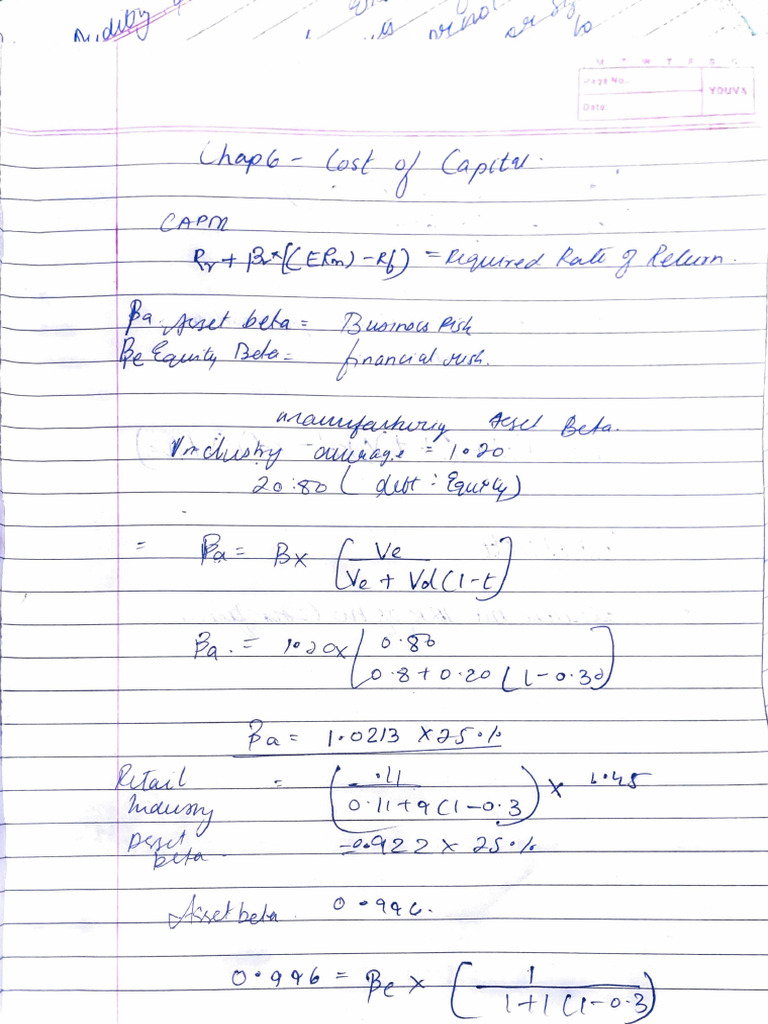 M T W T F S S
Page No.:
YOUVA
Date:
Chap 6 - Cost of Capital.
CAPM
Rr + βr*[(ERm) - Rf) = Required Rate of Return.
βa. Asset beta = Business Risk
βe Equity Beta = financial risk.
manufacturing Asset Beta.
Industry average = 1.20
20:80 ( debt : Equity)
= βa = B× [Ve / Ve + Vd(1-t]
βa. = 1.20× [0.80 / 0.8 + 0.20 (1-0.30)]
βa = 1.0213 ×25%
Retail = (.11 / 0.11+9(1-0.3) × 1.45
Industry
Asset =0.922 × 25%
beta.
Asset beta. 0.996.
0.996 = βe × (1 / 1+1(1-0.3)